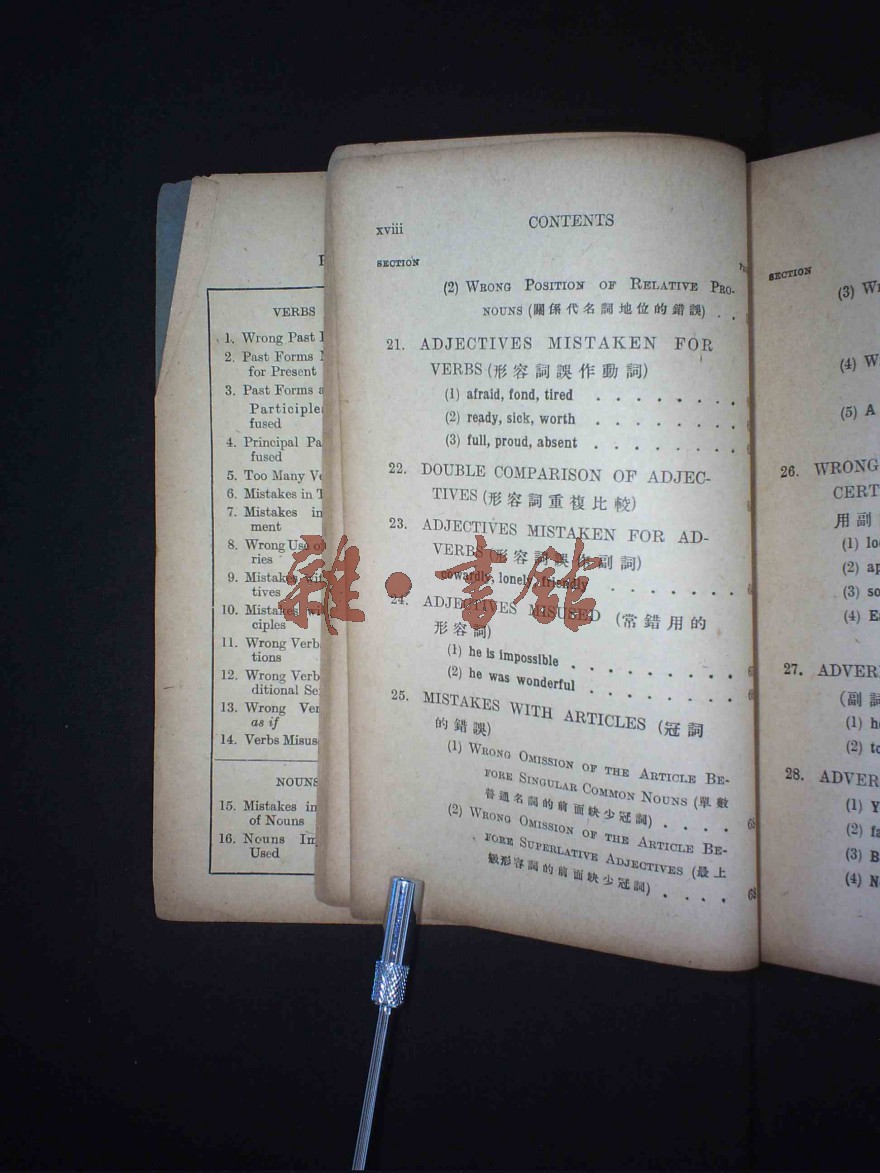 VERBS
1. Wrong Past
2. Past Forms
for Present
3. Past Forms
Participle
fused
4. Principal
fused
5. Too Many
6. Mistakes in
7. Mistakes in
ment
8. Wrong
ries
9.
tives
10.
ciples
11. Wrong Verb
tions
12. Wrong Verb
ditional
13. Wrong
as if
14. Verbs
NOUNS
15. Mistakes in
of Nouns
16. Nouns
Used
xviii CONTENTS
SECTION
(2) WRONG POSITION OF RELATIVE PRO-
NOUNS (關係代名詞地位的錯誤) . .
21. ADJECTIVES MISTAKEN FOR
VERBS (形容詞誤作動詞)
(1) afraid, fond, tired . . . . . . . .
(2) ready, sick, worth . . . . . . . .
(3) full, proud, absent . . . . . . . .
22. DOUBLE COMPARISON OF ADJEC-
TIVES (形容詞重複比較)
23. ADJECTIVES MISTAKEN FOR AD-
VERBS (形容詞誤作副詞)
cowardly, lonely, friendly . . . . . . .
24. ADJECTIVES MISUSED (常錯用的
形容詞)
(1) he is impossible . . . . . . . .
(2) he was wonderful . . . . . . . .
25. MISTAKES WITH ARTICLES (冠詞
的錯誤)
(1) WRONG OMISSION OF THE ARTICLE BE-
FORE SINGULAR COMMON NOUNS (單數
普通名詞的前面缺少冠詞) . . . . 68
(2) WRONG OMISSION OF THE ARTICLE BE-
FORE SUPERLATIVE ADJECTIVES (最上
級形容詞的前面缺少冠詞) . . . . 68
雜·書館
SECTION
(3)
(4)
(5) A
26. WRONG
用副
(1)
(2)
(3)
(4)
27.
(副
(1)
(2)
28.
(1)
(2)
(3)
(4)